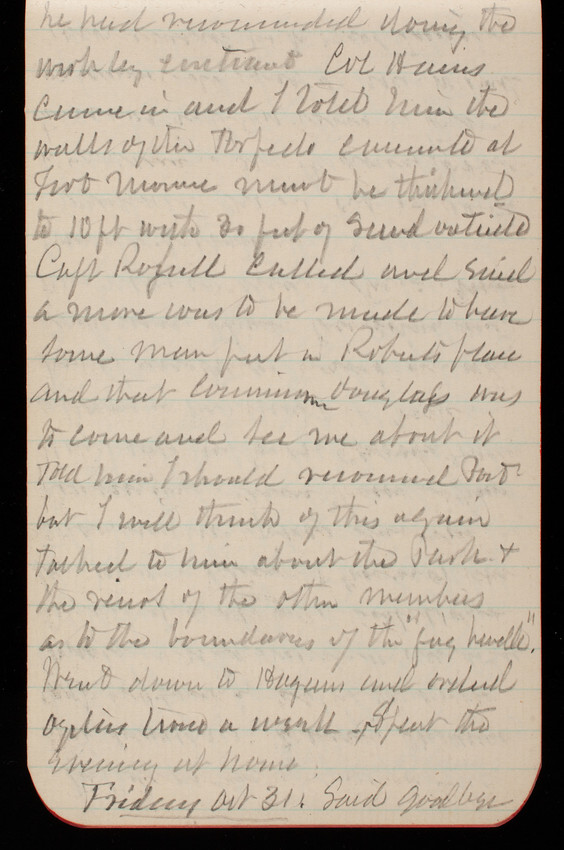 he had recommended doing the
work by contract Col Hains
came in and I told him the
walls of the Torpedo casemate at
Fort Monroe must be thickened
to 10 ft with 30 feet of sand outside
Capt Rossell called and said
a move was to be made to have
some man put in Roberts place
and that Commissioner Douglass was
to come and see me about it
Told him I should recommend Post
but I will think of this again
talked to him about the Park &
the views of the other members
as to the boundaries of the "
Went down to Hagans and ordered
oysters twice a week - Spent the
evening at home.
Friday Oct 31. Said Goodbye